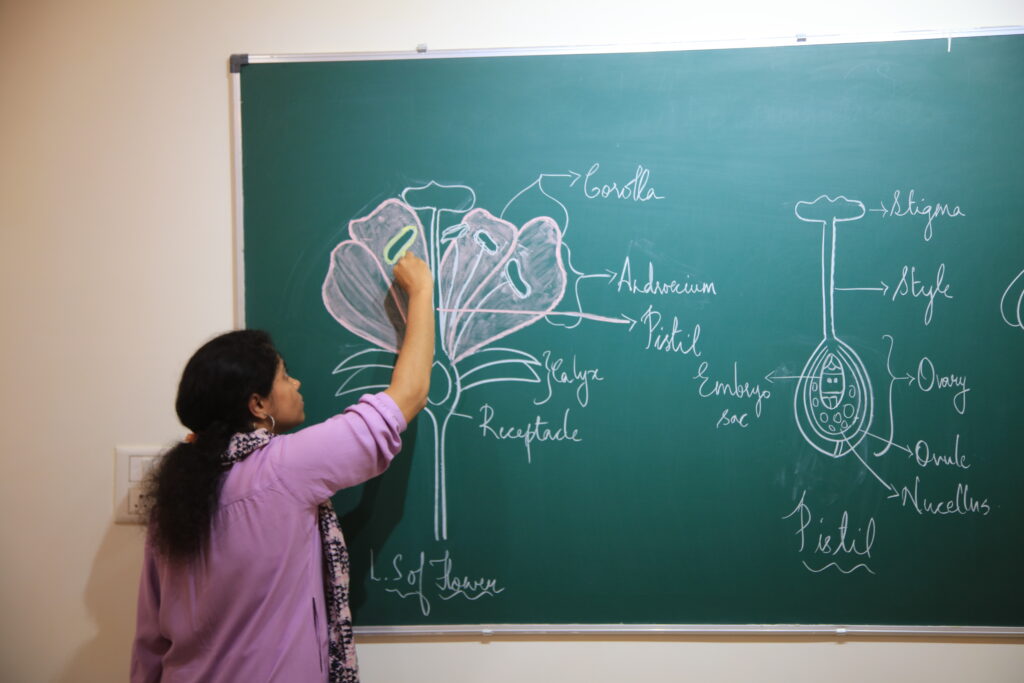 Corolla
Androecium
Pistil
Calyx
Receptacle
L.S of Flower
Stigma
Style
Embryo
sac
Ovary
Ovule
Nucellus
Pistil